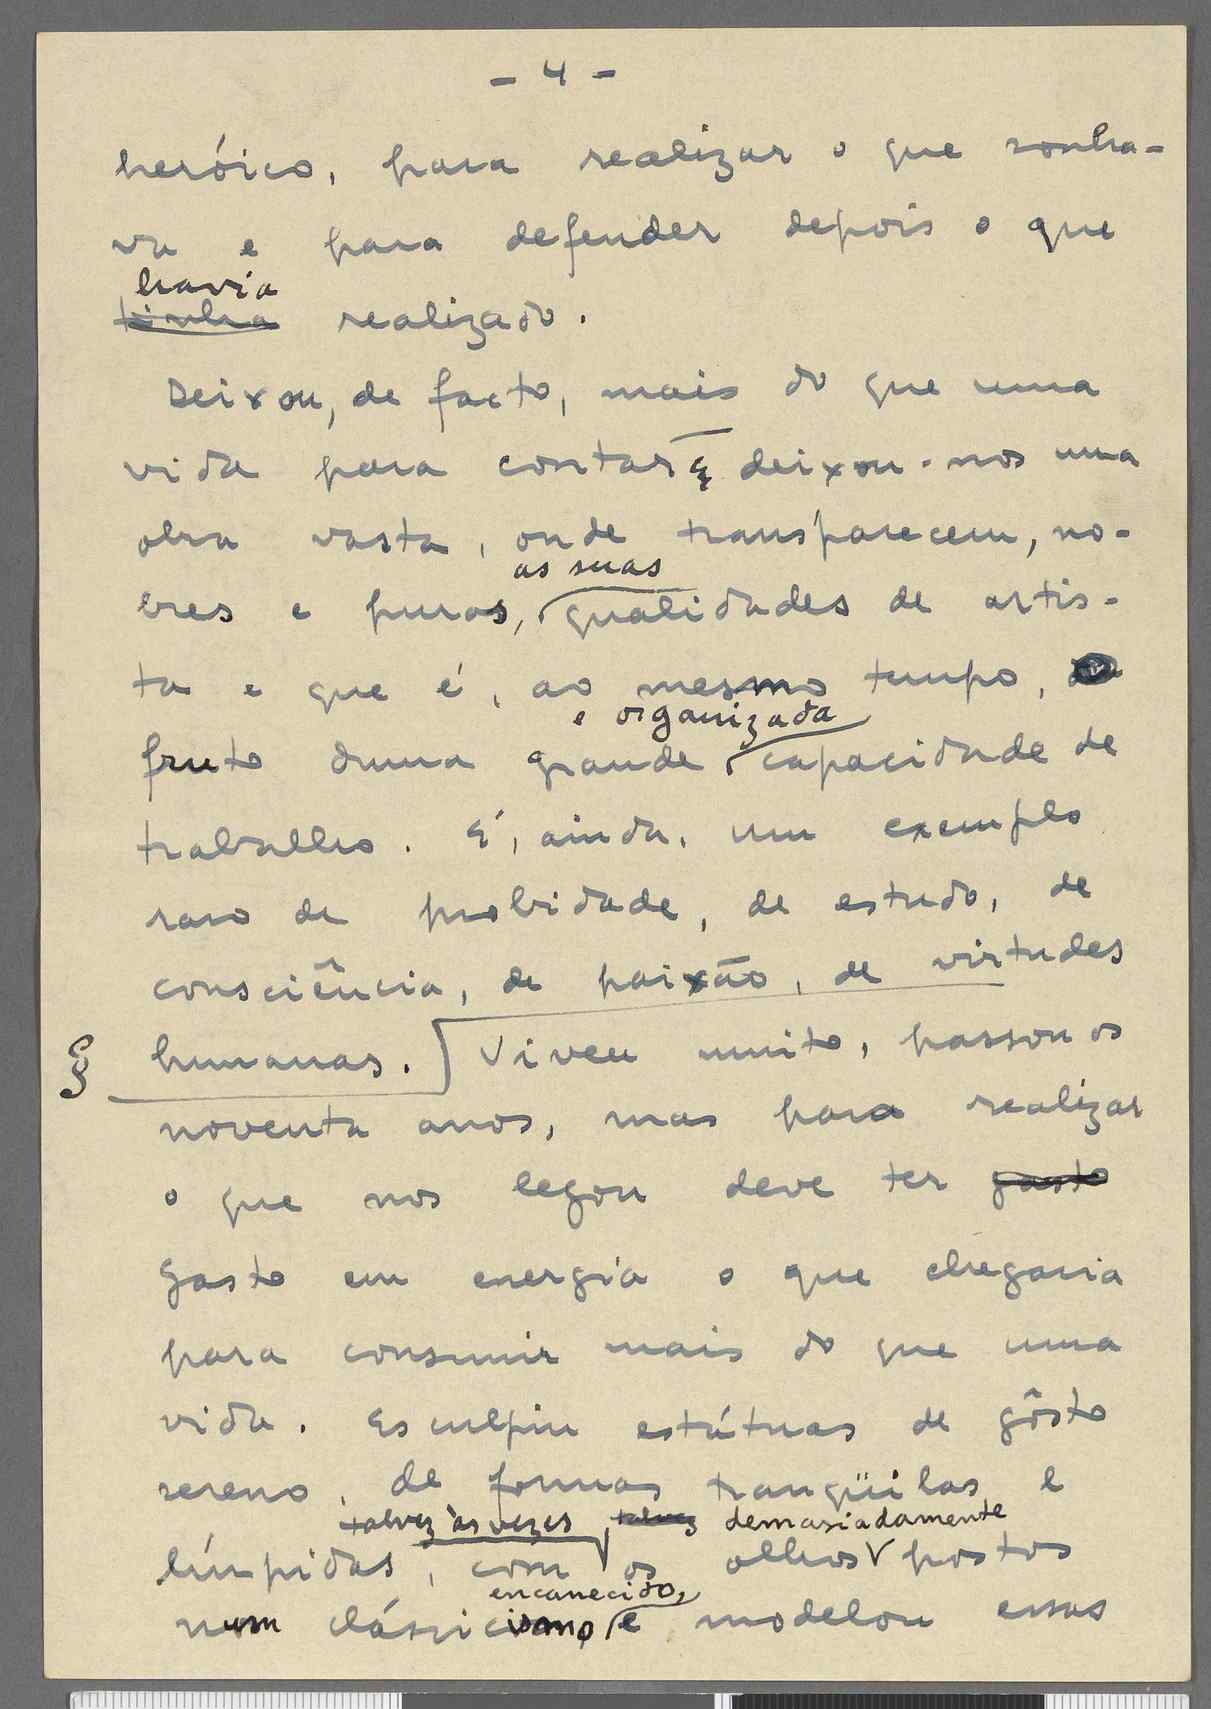 - 4 -
heróico, para realizar o que sonha-
va e para defender depois o que
havia
tinha realizado.
Deixou, de facto, mais do que uma
vida para contar E deixou-nos uma
obra vasta, onde transparecem, no-
as suas
bres e puras, qualidades de artis-
ta e que é, ao mesmo tempo,
e organizada
fruto duma grande capacidade de
trabalho. É, ainda, um exemplo
raro de probidade, de estudo, de
consciência, de paixão, de virtudes
§ humanas. ] Viveu muito, passou os
noventa anos, mas para realizar
o que nos legou deve ter gasto
gasto em energia o que chegaria
para consumir mais do que uma
vida. Esculpiu estátuas de gôsto
sereno, de formas tranqüilas e
talvez às vezes, talvez demasiadamente
límpidas, com os olhos postos
encanecido,
num clássicismo, e modelou essas